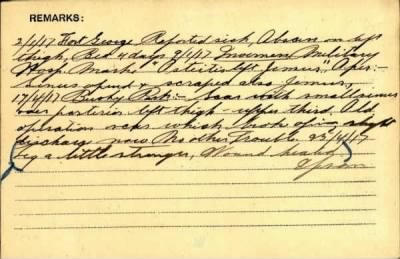 REMARKS:
2/1/17 Fort George Reported sick, Abscess on left
thigh, Bed 4 days 9/1/17 Inverness Military
Hosp. Marks "Osteitis left Femur" Oper:-
Sinus opened & scraped also Femur,
17/4/17 Bushy Park:- Scar with small sinus
over posterior left thigh - upper third. Old
operation scar which broke slight
discharge now. No other Trouble. 23/4/17
leg a little stronger, Wound healed